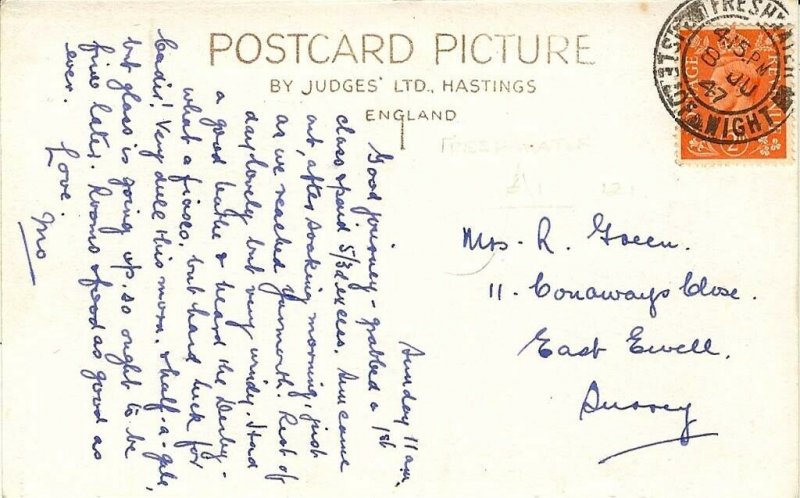 POSTCARD PICTURE
BY JUDGES' LTD., HASTINGS
ENGLAND
FRESHWATER
ISLE OF WIGHT
4.15 PM
8 JU
47
FRESHWATER
Sunday 11 a.m.
Good journey - grabbed a 1st
class & paid 5/3d excess. Sun came
out, after soaking morning, just
as we reached Yarmouth. Rest of
day lovely but very windy. Had
a good bathe & heard the Derby -
what a fiasco, but hard luck for
Very dull this morn. & half-a-gale,
but glass is going up, so ought to be
fine later. Rooms & food as good as
ever.
Love.
Mo
Mrs. R. Green.
11. Conaways Close.
East Ewell.
Surrey